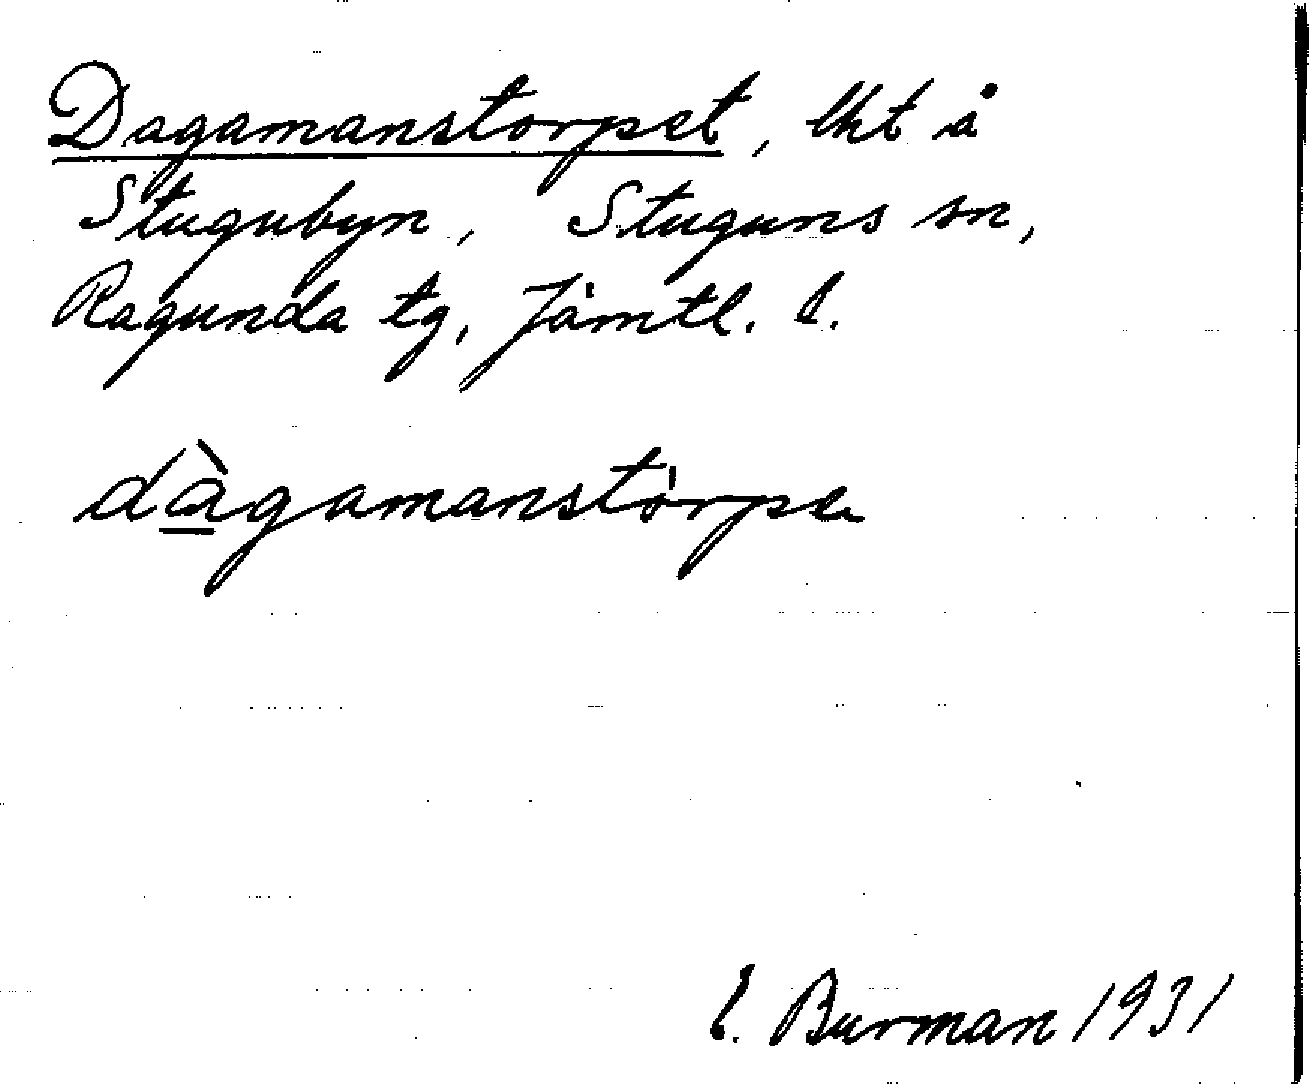 Dagamanstorpet, lht å
Stugubyn, Stuguns sn,
Ragunda tg, Jämtl. l.
dàgamanstò̍rpe
E. Burman 1931